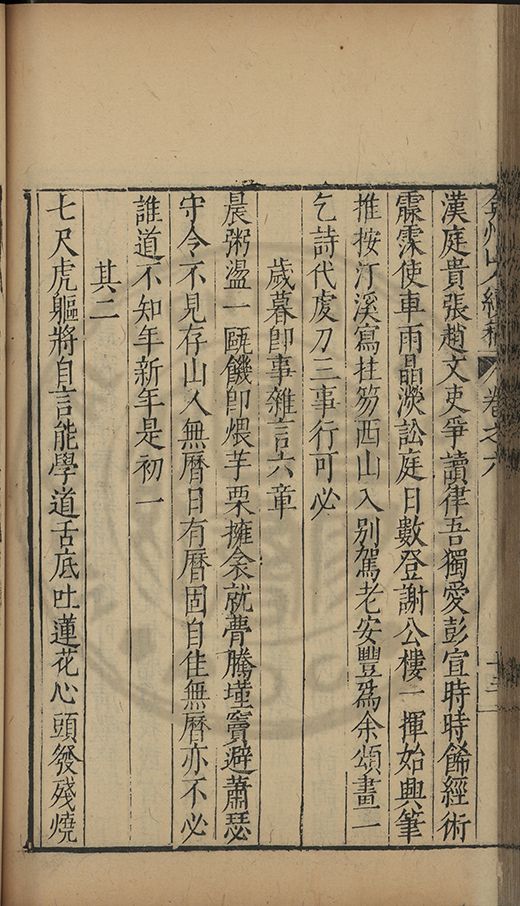 弇州山人續稿 卷之六 十三
漢庭貴張趙文吏爭讀律吾獨愛彭宣時時餙經術
霢霂使車雨晶濙訟庭日數登謝公樓一揮始興筆
推按汀溪寫拄笏西山入别駕老安豐爲余頌畫一
乞詩代䖍刀三事行可必
歲暮卽事雜言六章
晨粥盪一甌饑卽煨芋栗擁衾就瞢騰墐竇避蕭瑟
守令不見存山人無曆日有曆固自佳無曆亦不必
誰道不知年新年是初一
其二
七尺虎軀將自言能學道舌底吐蓮花心頭發殘燒